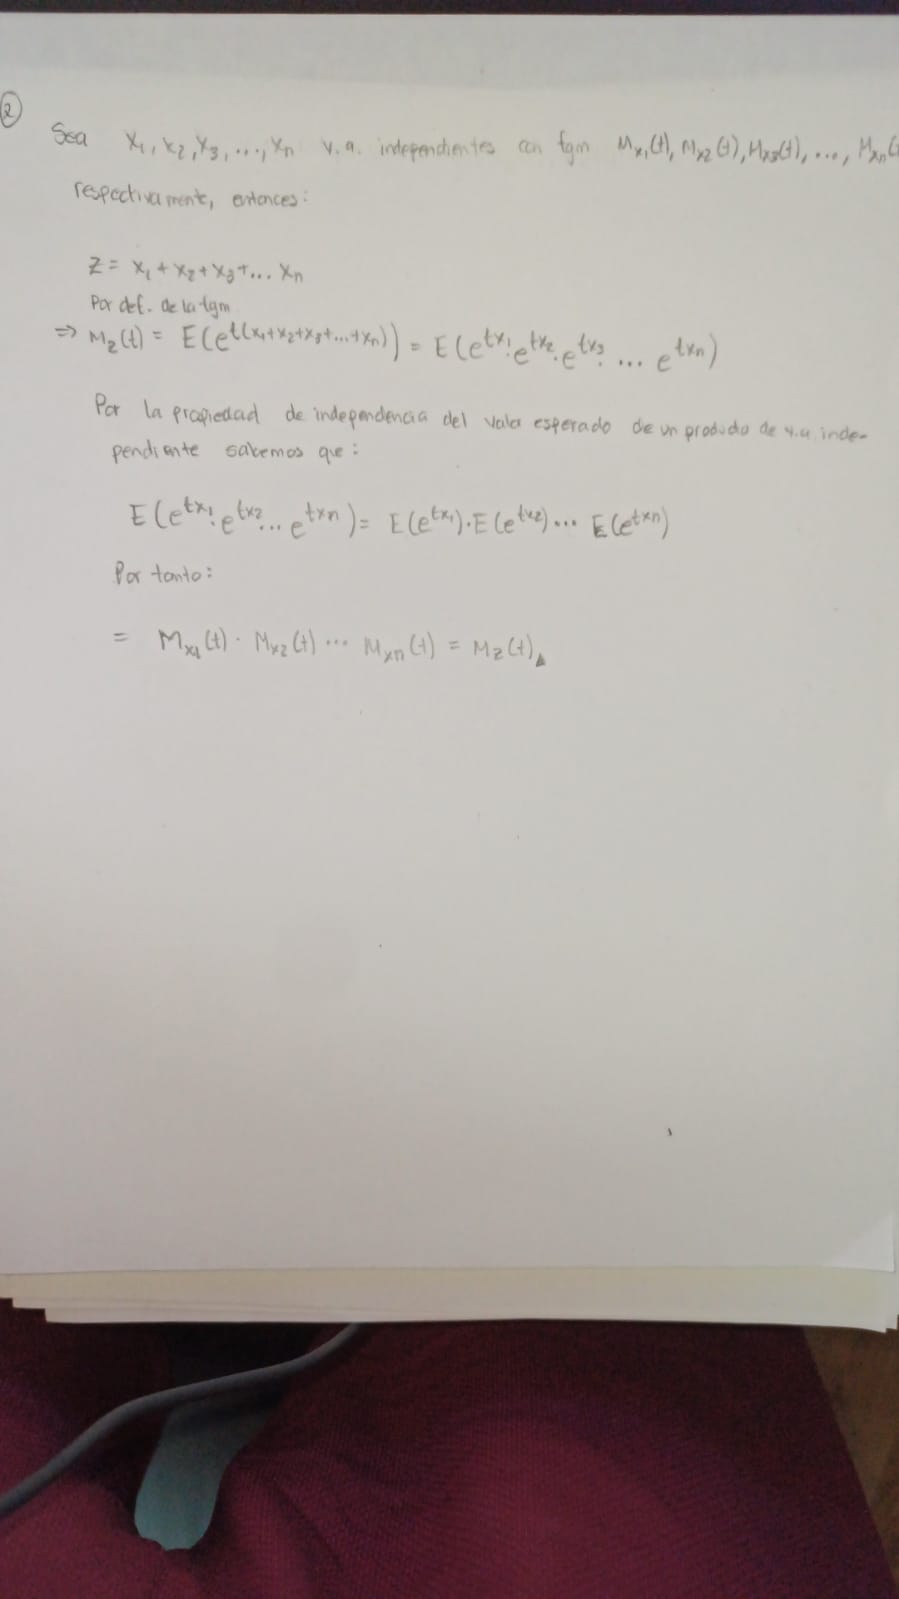 ②
Sea X₁, X₂, X₃, ..., Xn v.a. independientes con fgm Mx₁(t), Mx₂(t), Mx₃(t), ..., Mxn(
respectivamente, entonces:
Z = X₁ + X₂ + X₃ + ... Xn
Por def. de la fgm
⇒ Mz(t) = E(e^t(x₁+x₂+x₃+...+xn)) = E(e^tx₁ · e^tx₂ · e^tx₃ · ... e^txn)
Por la propiedad de independencia del valor esperado de un producto de v.a. inde-
pendiente sabemos que:
E(e^tx₁ · e^tx₂ ... e^txn) = E(e^tx₁) · E(e^tx₂) ... E(e^txn)
Por tanto:
= Mx₁(t) · Mx₂(t) ... Mxn(t) = Mz(t)▲